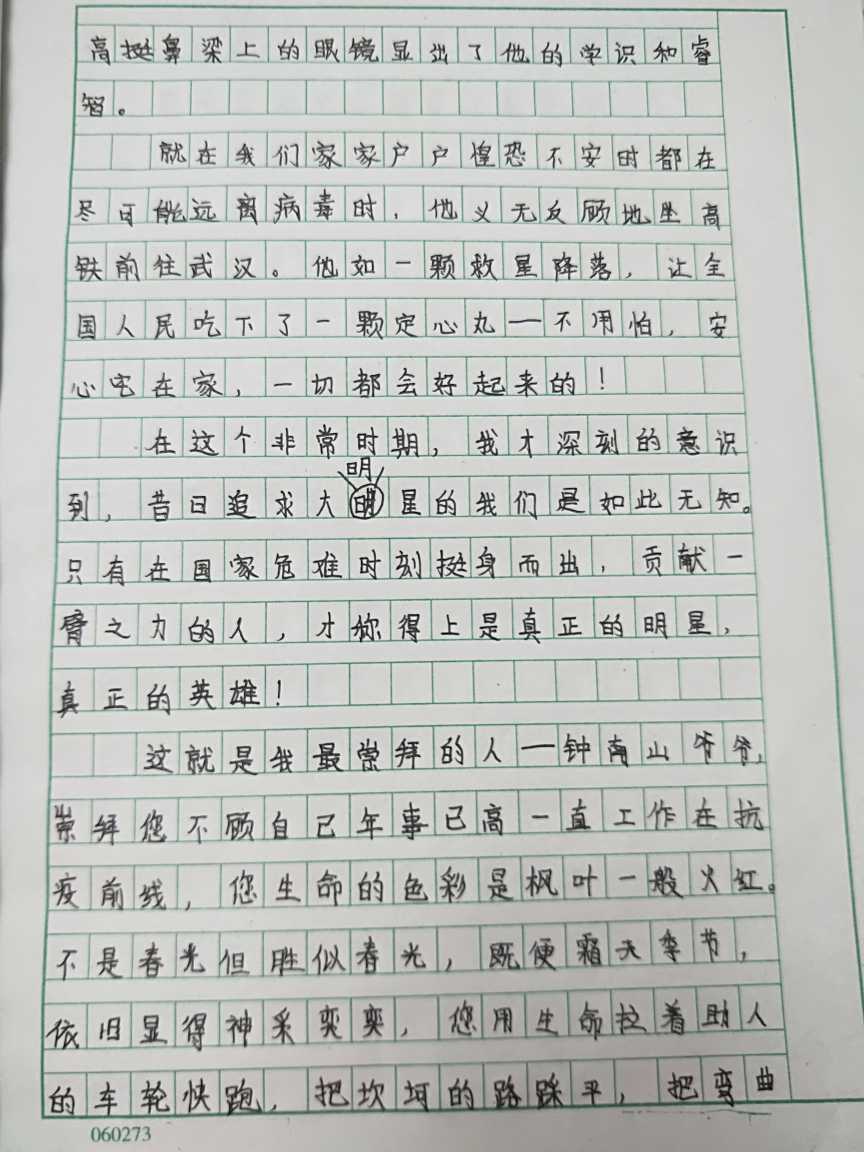 高挺鼻梁上的眼镜显出了他的学识和睿
智。
就在我们家家户户惶恐不安时都在
尽可能远离病毒时，他义无反顾地坐高
铁前往武汉。他如一颗救星降落，让全
国人民吃下了一颗定心丸—不用怕，安
心宅在家，一切都会好起来的！
在这个非常时期，我才深刻的意识
明
到，昔日追求大明星的我们是如此无知。
只有在国家危难时刻挺身而出，贡献一
臂之力的人，才称得上是真正的明星，
真正的英雄！
这就是我最崇拜的人—钟南山爷爷，
崇拜您不顾自己年事已高一直工作在抗
疫前线，您生命的色彩是枫叶一般火红。
不是春光但胜似春光，既便霜天季节，
依旧显得神采奕奕，您用生命拉着助人
的车轮快跑，把坎坷的路踩平，把弯曲
060273